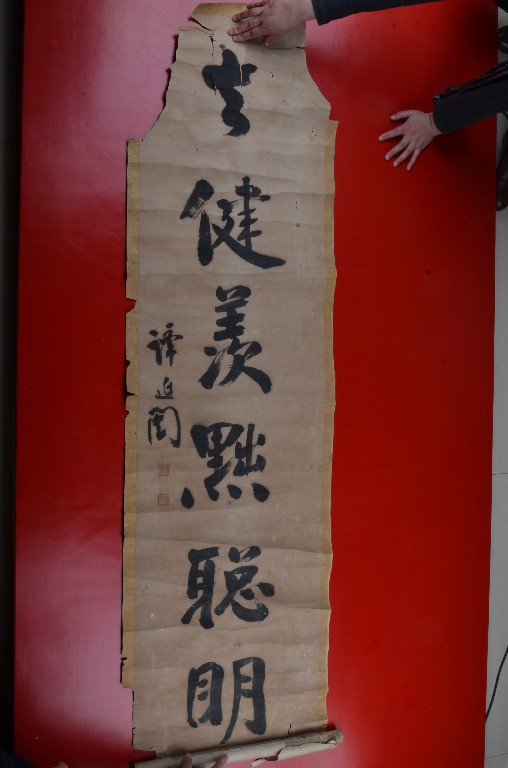 去健羨黜聰明
譚延闓